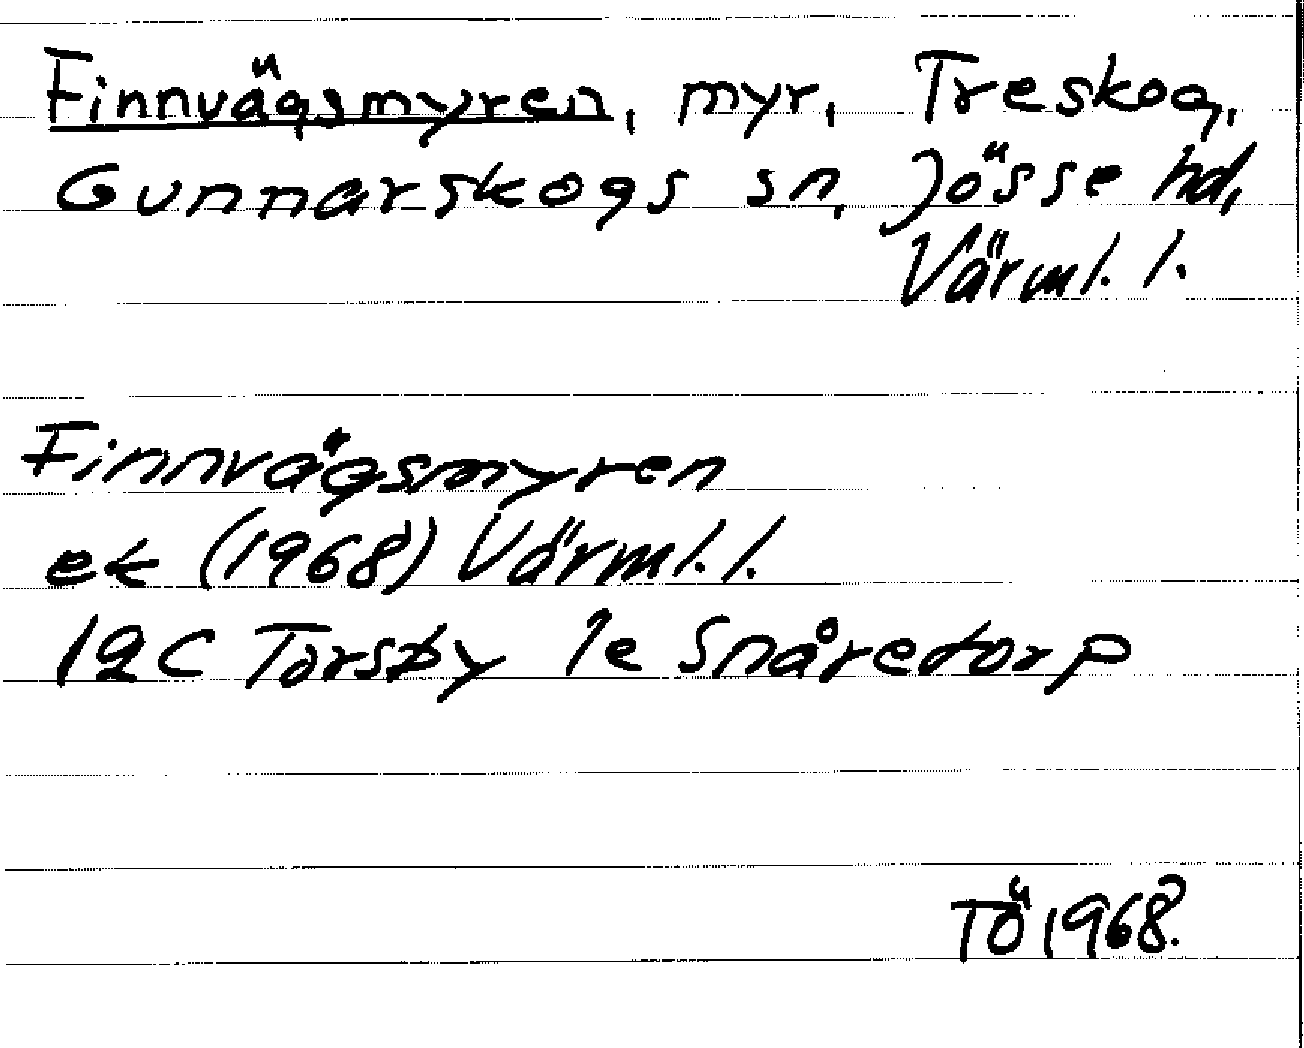 Finnvägsmyren, myr, Treskog,
Gunnarskogs sn, Jösse hd,
Värml. l.
Finnvägsmyren
ek (1968) Värml. l.
12C Torsby 1e Snåretorp
TÖ 1968.